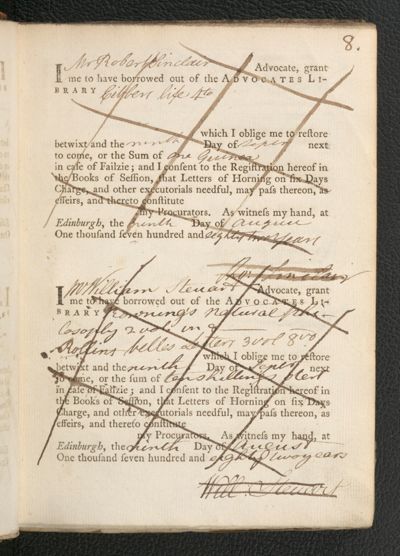 8.
I Mr Robert Sinclair Advocate, grant
me to have borrowed out of the ADVOCATES LI-
BRARY Cibbers life 4to
which I oblige me to reſtore
betwixt and the ninth Day of Sepr next
to come, or the Sum of one guinea
in caſe of Failzie; and I conſent to the Regiſtration hereof in
the Books of Seſſion, that Letters of Horning on ſix Days
Charge, and other executorials needful, may paſs thereon, as
effeirs, and thereto conſtitute
my Procurators. As witneſs my hand, at
Edinburgh, the ninth Day of august
One thouſand ſeven hundred and eighty two years
Ro: Sinclair
I Mr William Steuart Advocate, grant
me to have borrowed out of the ADVOCATES LI-
BRARY natural phi-
losophy 2 vol in
Rollins belles letters 3 vol 8vo
which I oblige me to reſtore
betwixt and the ninth Day of Sepr next
to come, or the sum of ten shillings
in caſe of Failzie; and I conſent to the Regiſtration hereof in
the Books of Seſſion, that Letters of Horning on ſix Days
Charge, and other executorials needful, may paſs thereon, as
effeirs, and thereto conſtitute
my Procurators. As witneſs my hand, at
Edinburgh, the ninth Day of August
One thouſand ſeven hundred and eighty two years
Will: Steuart